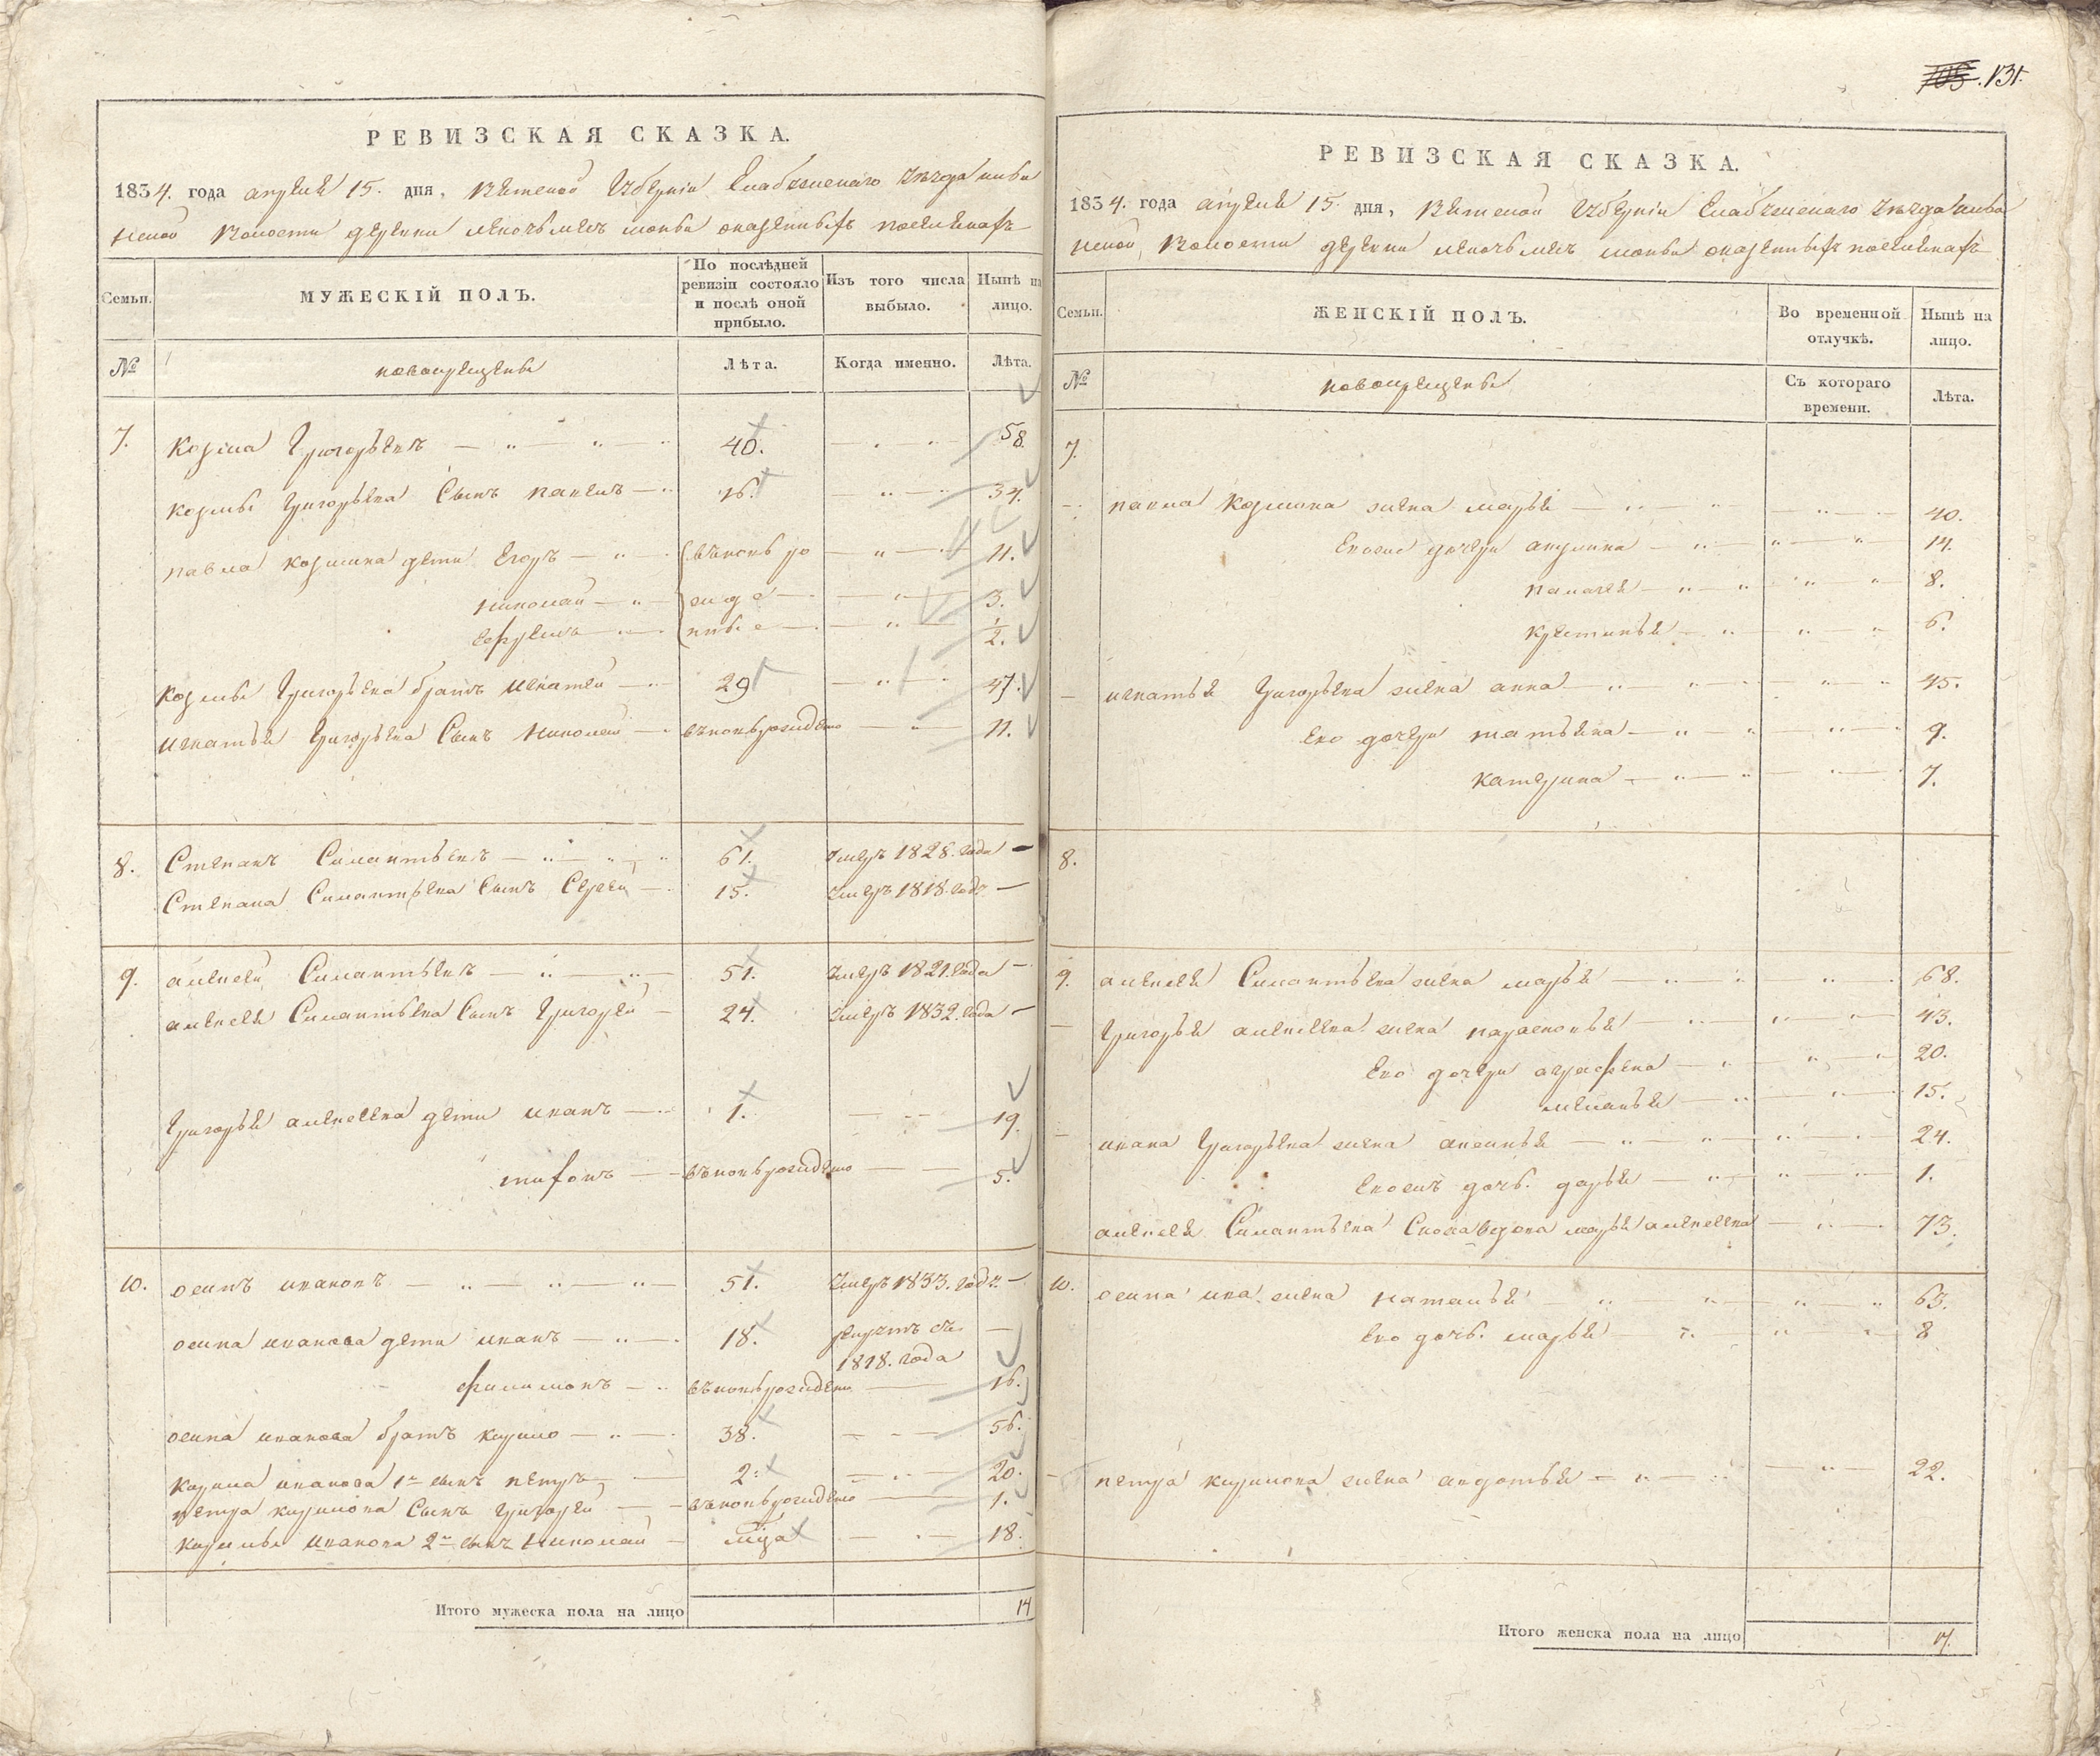 РЕВИЗСКАЯ СКАЗКА.
1834. года апреля 15. дня, Вятской Губернiи Елабужскаго уезда
волости деревни
Семьи.
МУЖЕСКIЙ ПОЛЪ.
По послѣдней ревизiи состояло и послѣ оной прибыло.
Изъ того числа выбыло.
Нынѣ на лицо.
№
новокрещены
Лѣта.
Когда именно.
Лѣта.
7. Козма Григорьевъ 40. 58
Козмы Григорьева Сынъ павелъ 16. 34.
павла козмина дети Егоръ вновь ро 11.
николай жде 3.
ефремъ нные 1/2.
Козмы Григорьева братъ игнатей 29 47.
игнатья Григорьева Сынъ николай вновьрожденъ 11.
8. Степанъ Силантьевъ 61. умеръ 1828. года
Степана Силантьева Сынъ Сергей 15. умеръ 1818. года
9. алексей Силантьевъ 51. умеръ 1821. года
алексея Силантьева Сынъ Григорей 24. умеръ 1832. года
Григорья алексеева дети иванъ 1. 19.
вновьрожденъ 5.
10. осипъ ивановъ 51. умеръ 1833. года
осипа иванова дети иванъ 18. рекрутъ съ
1818. года
филимонъ вновьрожденъ 16.
осипа иванова братъ кирило 38. 56.
кирила иванова 1й сынъ петръ 2. 20.
петра кирилова Сынъ Григорей вновьрожденъ 1.
кирилы иванова 2й сынъ николай 18.
Итого мужеска пола на лицо 14
131.
РЕВИЗСКАЯ СКАЗКА.
1834. года апреля 15. дня, Вятской Губернiи Елабужскаго уезда
волости деревни
Семьи.
ЖЕНСКIЙ ПОЛЪ.
Во временной отлучкѣ.
Нынѣ на лицо.
№
новокрещены
Съ котораго времени.
Лѣта.
7.
павла Козмина жена марья 40.
Евоже дочери акулина 14.
пелагея 8.
крестинья 6.
игнатья Григорьева жена анна 45.
Ево дочери татьяна 9.
катерина 7.
8.
9. алексея Силантьева жена марья 68.
Григорья алексеева жена парасковья 43.
Ево дочери аграфена 20.
меланья 15.
ивана Григорьева жена аксинья 24.
дочь дарья 1.
алексея Силантьева вдова марья алексеева 73.
10. осипа ива. жена наталья 63.
Ево дочь марья 8
петра кирилова жена авдотья 22.
Итого женска пола на лицо 17.